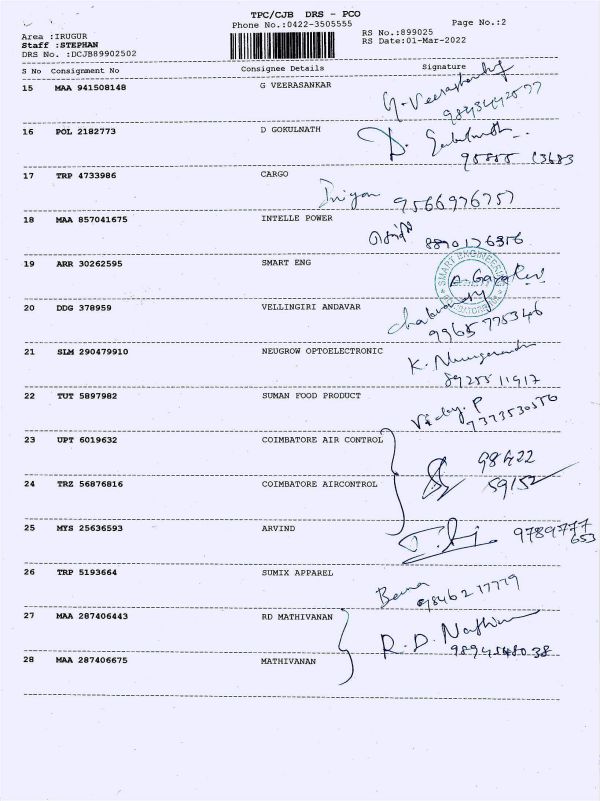 TPC/CJB DRS - PCO
Phone No.:0422-3505555
Page No.:2
Area :IRUGUR
RS No.:899025
Staff :STEPHAN
RS Date:01-Mar-2022
DRS No. :DCJB89902502
S No Consignment No Consignee Details Signature
15 MAA 941508148 G VEERASANKAR
16 POL 2182773 D GOKULNATH
17 TRP 4733986 CARGO
9566976757
18 MAA 857041675 INTELLE POWER
8870176356
19 ARR 30262595 SMART ENG
SMART ENGINEERING
20 DDG 378959 VELLINGIRI ANDAVAR
9965775346
21 SLM 290479910 NEUGROW OPTOELECTRONIC
K.
8925511917
22 TUT 5897982 SUMAN FOOD PRODUCT
7373530556
23 UPT 6019632 COIMBATORE AIR CONTROL
98422
24 TRZ 56876816 COIMBATORE AIRCONTROL
59152
25 MYS 25636593 ARVIND
9789777
653
26 TRP 5193664 SUMIX APPAREL
27 MAA 287406443 RD MATHIVANAN
R.D.
28 MAA 287406675 MATHIVANAN